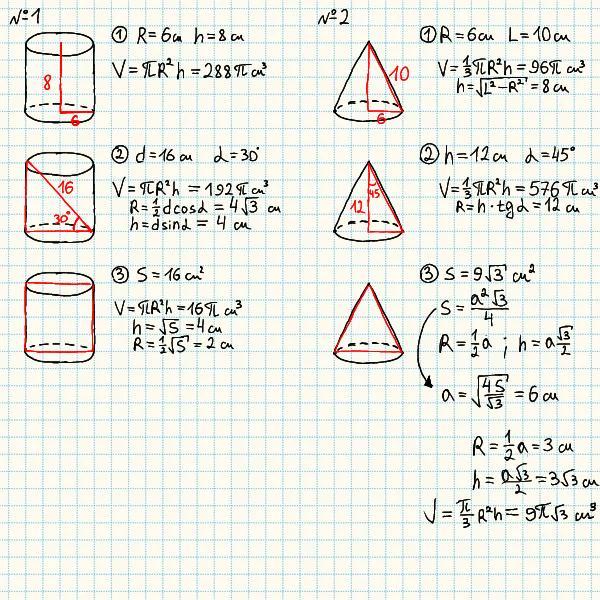 №1
① R=6см h=8см
V=πR²h=288π см³
8
6
② d=16см α=30°
V=πR²h=192π см³
R=½dcosα=4√3 см
h=dsinα=4 см
16
30°
③ S=16см²
V=πR²h=16π см³
h=√S=4см
R=½√S=2 см
№2
① R=6см L=10см
V=⅓πR²h=96π см³
h=√(L²-R²)=8см
10
6
② h=12см α=45°
V=⅓πR²h=576π см³
R=h·tgα=12см
45
12
③ S=9√3 см²
S=a²√3/4
R=½a ; h=a√3/2
a=√(4S/√3)=6см
R=½a=3 см
h=a√3/2=3√3 см
V=π/3 R²h=9π√3 см³